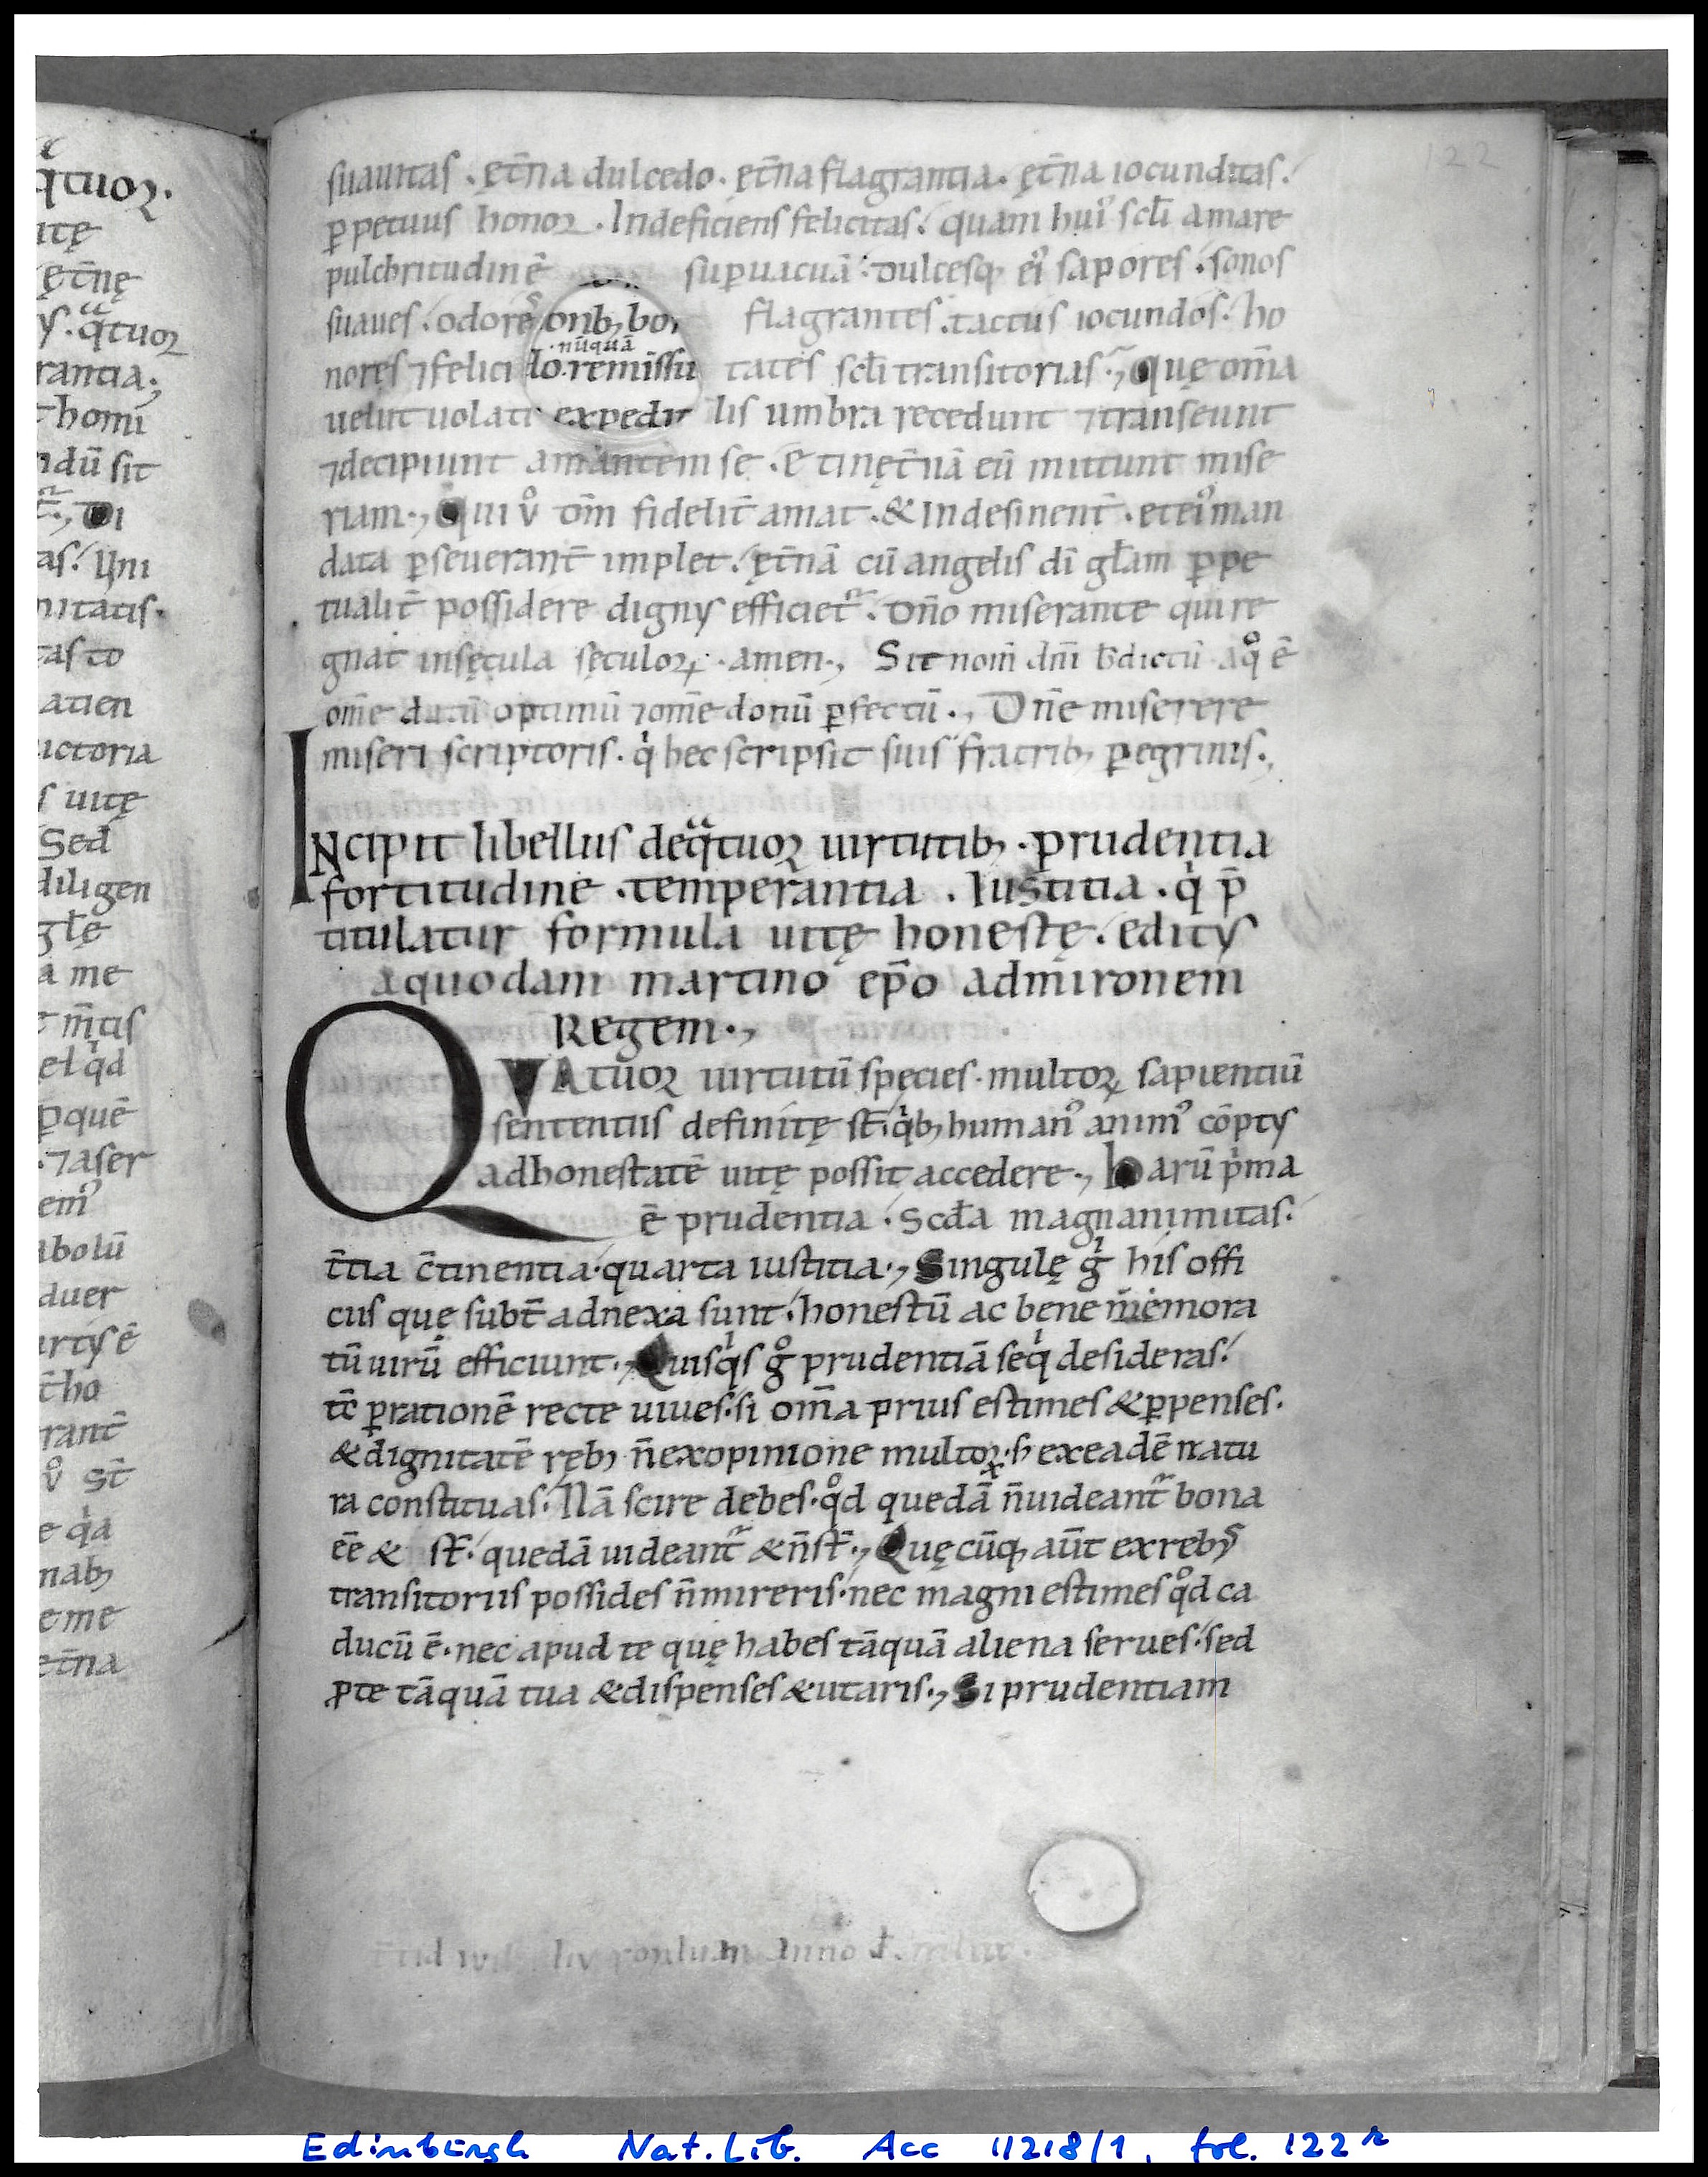 q̃tuoꝝ.
itę
ęt̄nę
ꝯ. q̃tuoꝝ
rantia;
homī
ndū sit
Di
as. Uni
nitatis.
tas to
atien
uctoria
s uitę
Sed
diligen
głę
a me
m̄tis
el qͥd
ꝑ quē
. ⁊ aser
em᷒
abolū
duer
rtꝯ ē
ho
rant̄
v̊ st̄
e qͥd
nabꝫ
e me
et̄na
122
suauitas . ęt̄na dulcedo . ęt̄na flagrantia . ęt̄na iocunditas.
ꝑpetuus honoꝛ . Indeficiens felicitas. quam hui᷒ scl̄i amare
pulchritudinē suꝑuacuā. dulcesqꝫ ei᷒ sapores. sonos
suaues. odorēs onibꝫ bo flagrantes. tactus iocundos. ho
nūquā
nores ⁊ felici do. remissu tates scl̄i transitorias., Quę om̄a
uelut uolati expedit lis umbra recedunt ⁊ transeunt
⁊ decipiunt amantem se . et in ęt̄nā eū mittunt mise
riam., Qui v̊ dm̄ fidelit̄ amat . & Indesinent̄ . et ei᷒ man
data ꝑseuerant̄ implet. ęt̄nā cū angelis dī gl̄am ꝑpe
tualit̄ possidere dignꝯ efficietᷣ. dn̄o miserante qui re
gnat in sęcula sęculoꝝ . amen., Sit nom̄ dn̄i b̄dictū a qͦ ē
om̄e datū optimū ⁊ om̄e donū ꝑfectū., Dn̄e miserere
miseri scriptoris . qͥ hec scripsit suis fratribꝫ ꝑegrinis.,
Incipit libellus de q̃tuoꝝ uirtutibꝫ . prudentia
fortitudine . temperantia . Iustitia . qͥ p̄
titulatur formula uitę honestę. editꝯ
a quodam martino ep̄o ad mironem
Regem.,
QVATuoꝝ uirtutū spęcies . multoꝝ sapientiū
sententiis definitę st̄. qͥbꝫ human᷒ anim᷒ cōptꝯ
ad honestatē uitę possit accedere., Harū pͥma
ē prudentia . Scd̄a magnanimitas.
t̄tia c̄tinentia. quarta iustitia., Singulę gͥ his offi
ciis quę subt̄ adnexa sunt. honestū ac bene m̄emora
tū uirū efficiunt., Quisqͥs gͦ prudentiā seqͥ desideras.
tc̄ ꝑ rationē recte uiues. si om̄a prius estimes & ꝑpenses.
& dignitatē rębꝫ n̄ ex opinione multoꝝ. s; ex eadē natu
ra constituas. Nā scire debes. qͦd quedā n̄ uideantᷣ bona
ēē & st̄. quedā uideantᷣ & n̄ st̄., Quęcūqꝫ aūt ex rebꝯ
transitoriis possides n̄ mireris. nec magni estimes qͦd ca
ducū ē. nec apud te quę habes tāquā aliena serues. sed
ꝓ te tāquā tua & dispenses & utaris., Si prudentiam
Anno d.
Edinburgh Nat. Lib. Acc 11218/1, fol. 122 r